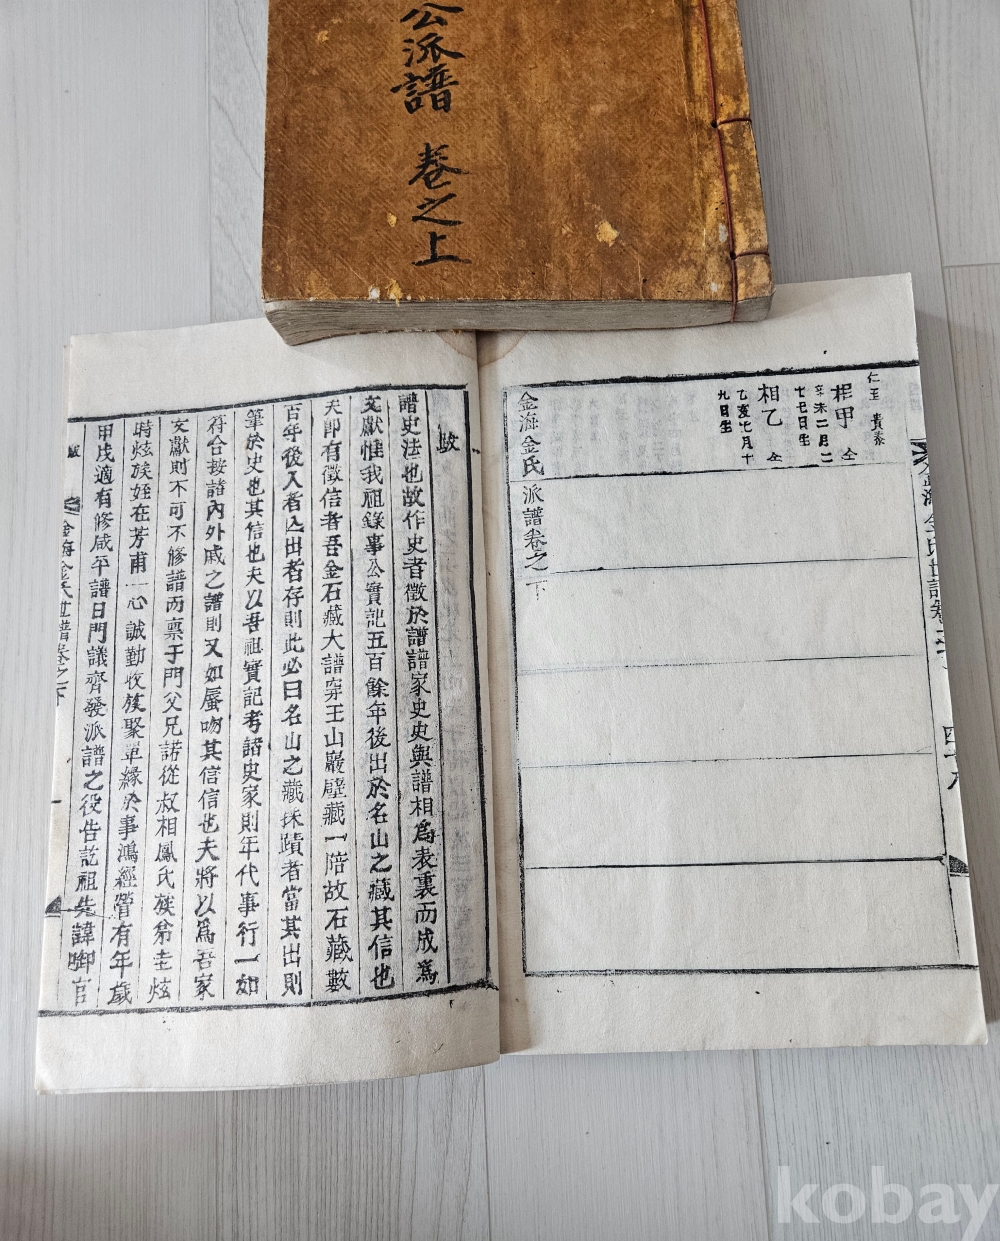 公派譜 卷之上
金海金氏世譜卷之下
仁至 貴泰
相甲 仝
辛未二月二
十七日生
相乙 仝
乙亥七月十
九日生
金海金氏派譜卷之下
跋
譜史法也故作史者徵於譜譜家史史與譜相爲表裏而成爲
文獻惟我祖錄事公實記五百餘年後出於名山之藏其信也
夫卽有徵信者吾金石藏大譜穿王山巖壁藏一陪故石藏數
百年後入者出者存則此必曰名山之藏採蹟者當其出則
筆於史也其信也夫以吾祖實記考諸史家則年代事行一如
符合按諸內外戚之譜則又如蜃吻其信信也夫將以爲吾家
文獻則不可不修譜而稟于門父兄諾從叔相鳳氏族弟圭炫
時炫族姪在芳甫一心誠勤收族聚單緣於事鴻經營有年歲
甲戌適有修咸平譜日門議齊發派譜之役告訖祖先諱啣官
跋
金海金氏世譜卷之下
kobay